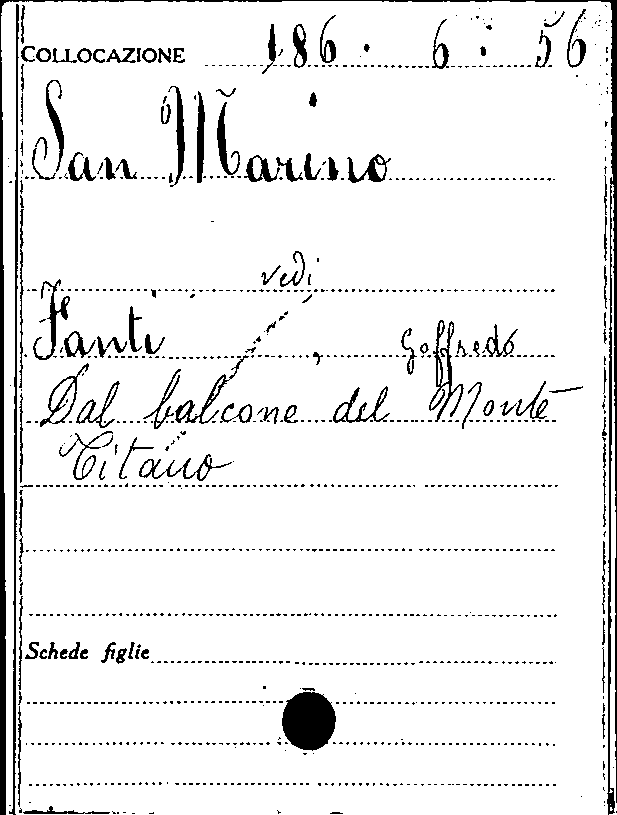 COLLOCAZIONE 186 . 6 . 56
San Marino
vedi
Fanti , Goffredo
Dal balcone del Monte
Titano
Schede figlie